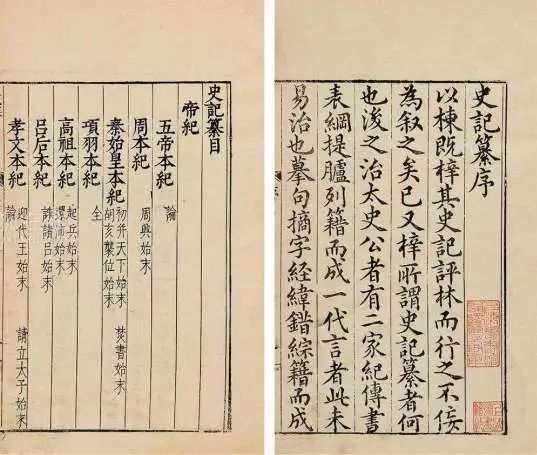 史記纂序
以棟既梓其史記評林而行之不佞
為叙之矣已又梓所謂史記纂者何
也後之治太史公者有二家紀傳書
表綱提臚列籍而成一代言者此未
易治也摹句摘字經緯錯綜籍而成
史記纂目
帝紀
五帝本紀 論
周本紀 周興始末
秦始皇本紀 初并天下始末 焚書始末
胡亥襲位始末
項羽本紀 全
高祖本紀 起兵始末
還沛始末
呂后本紀 誅諸呂始末
孝文本紀 迎代王始末 請立太子始末
論